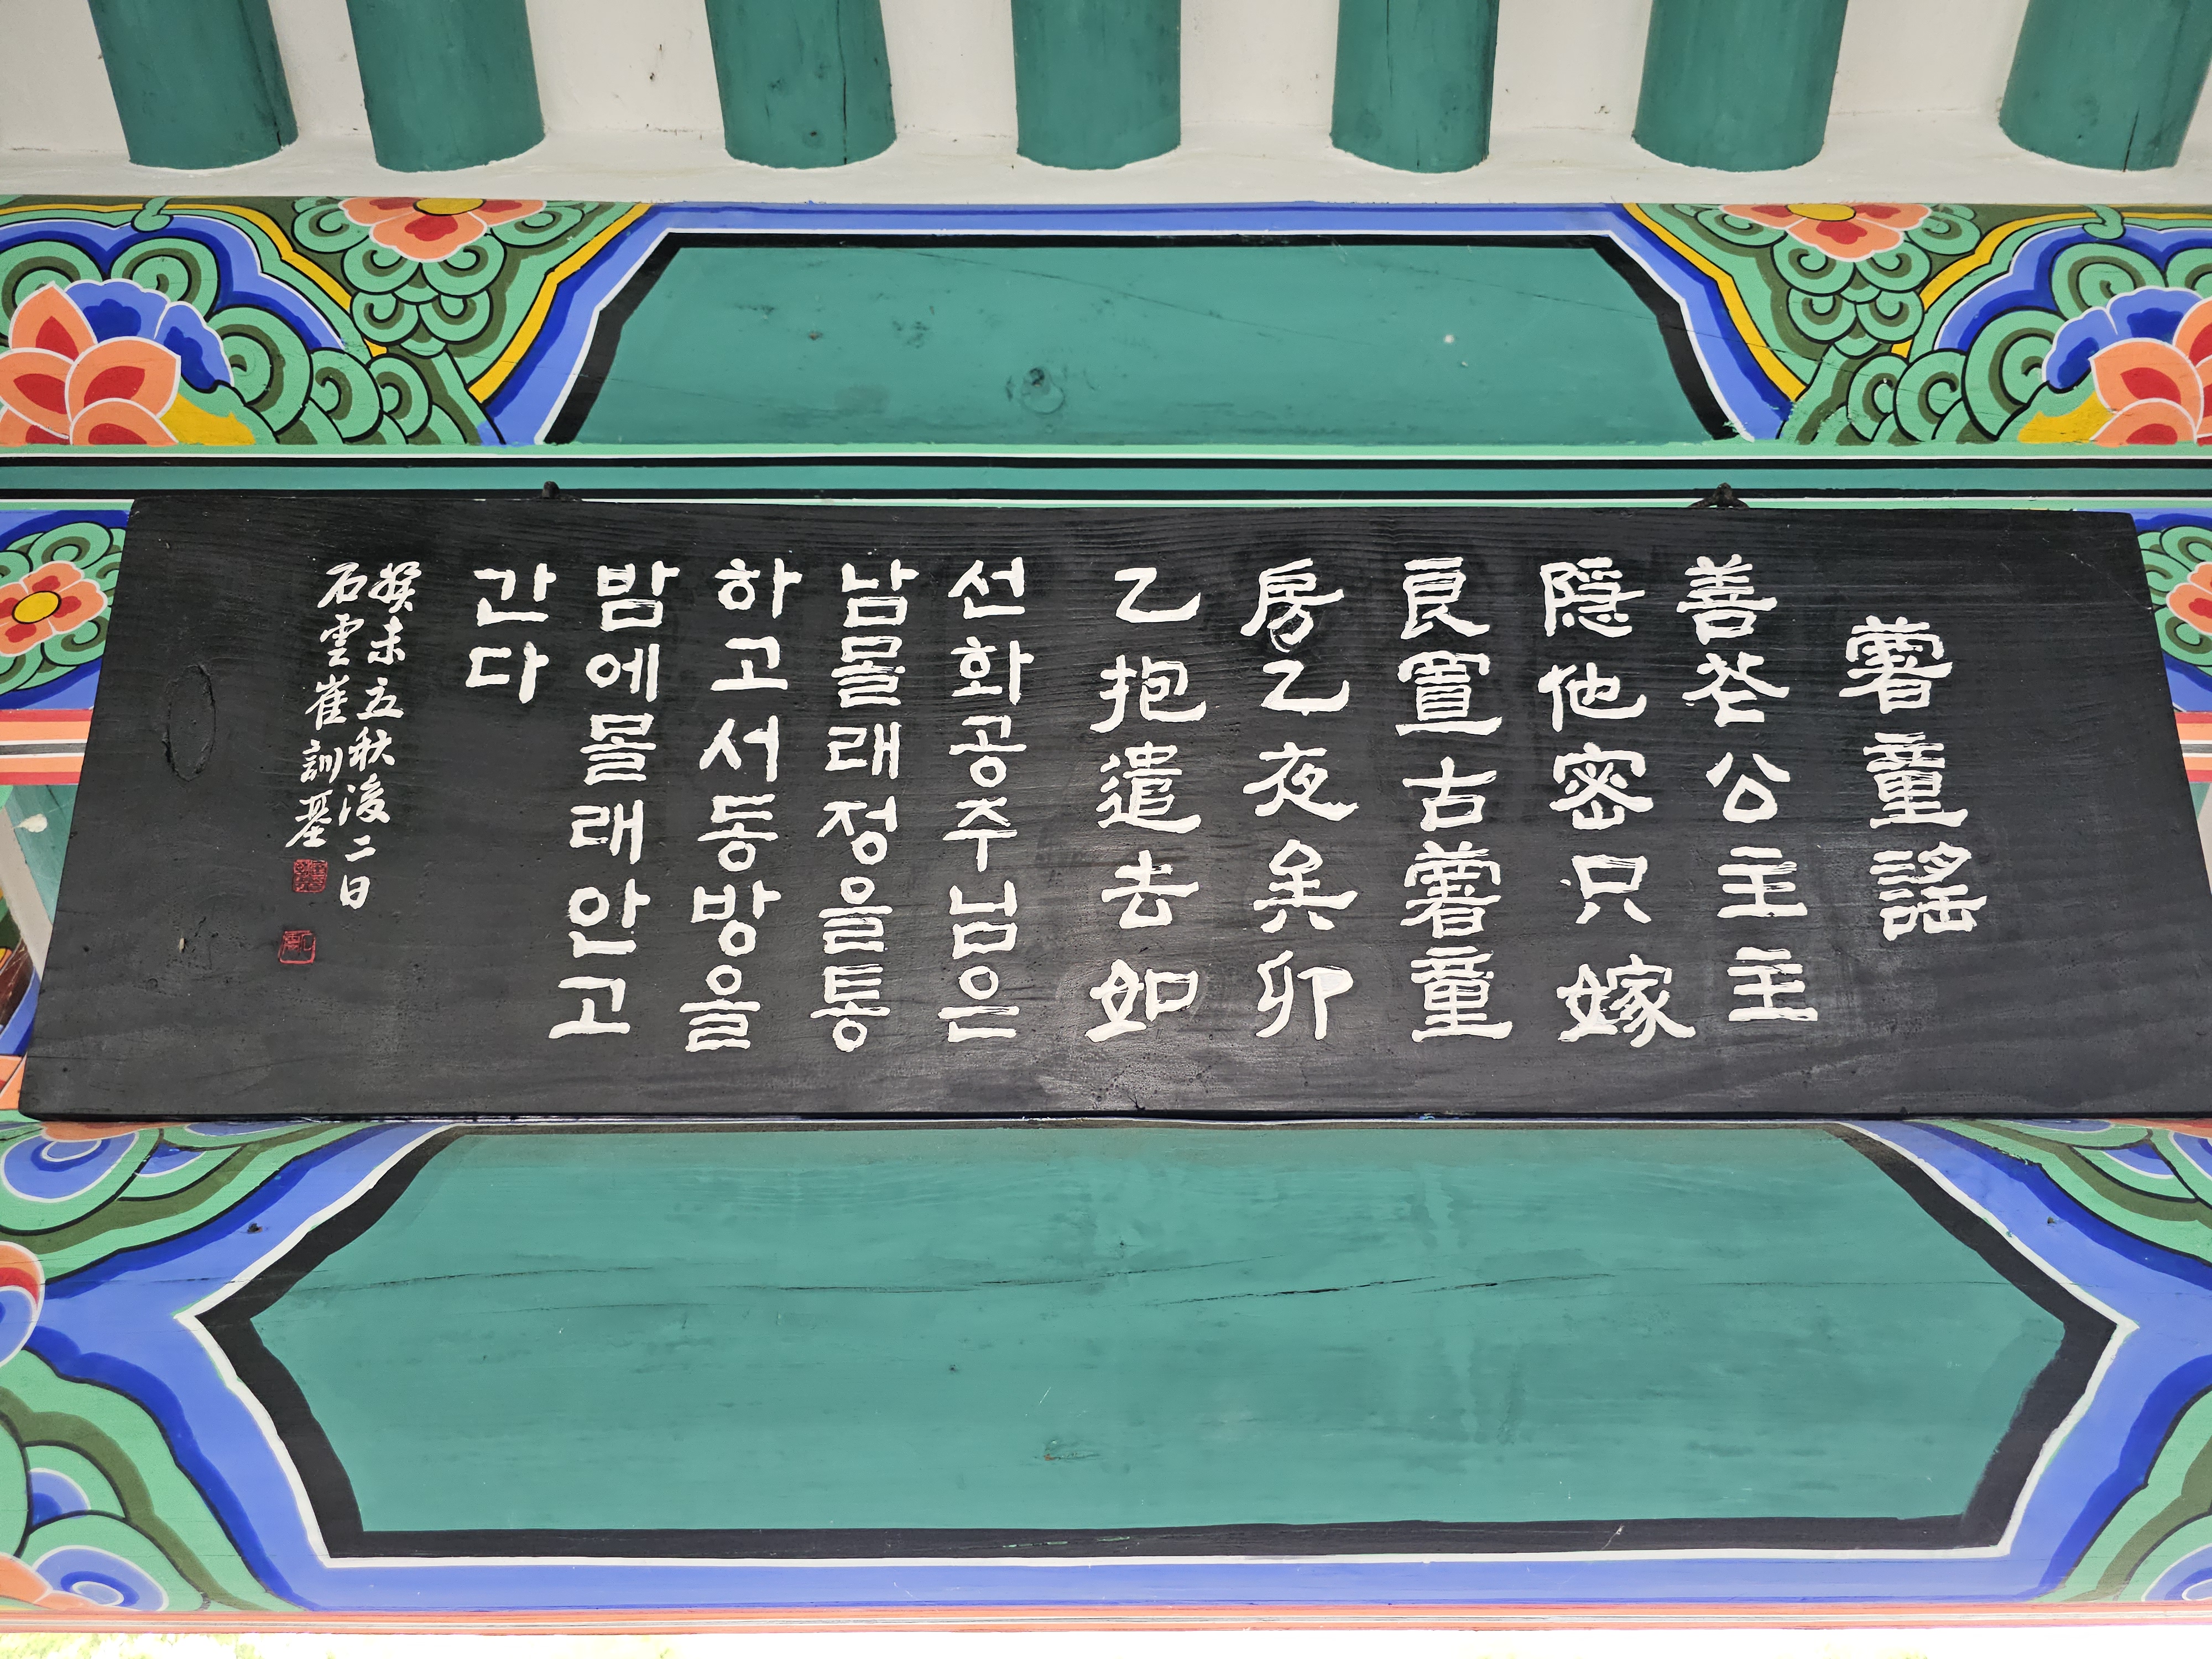 薯童謠
善花公主主
隱他密只嫁
良置古薯童
房乙夜矣卯
乙抱遣去如
선화공주님은
남몰래정을통
하고서동방을
밤에몰래안고
간다
癸未立秋後二日
石雲崔訓基